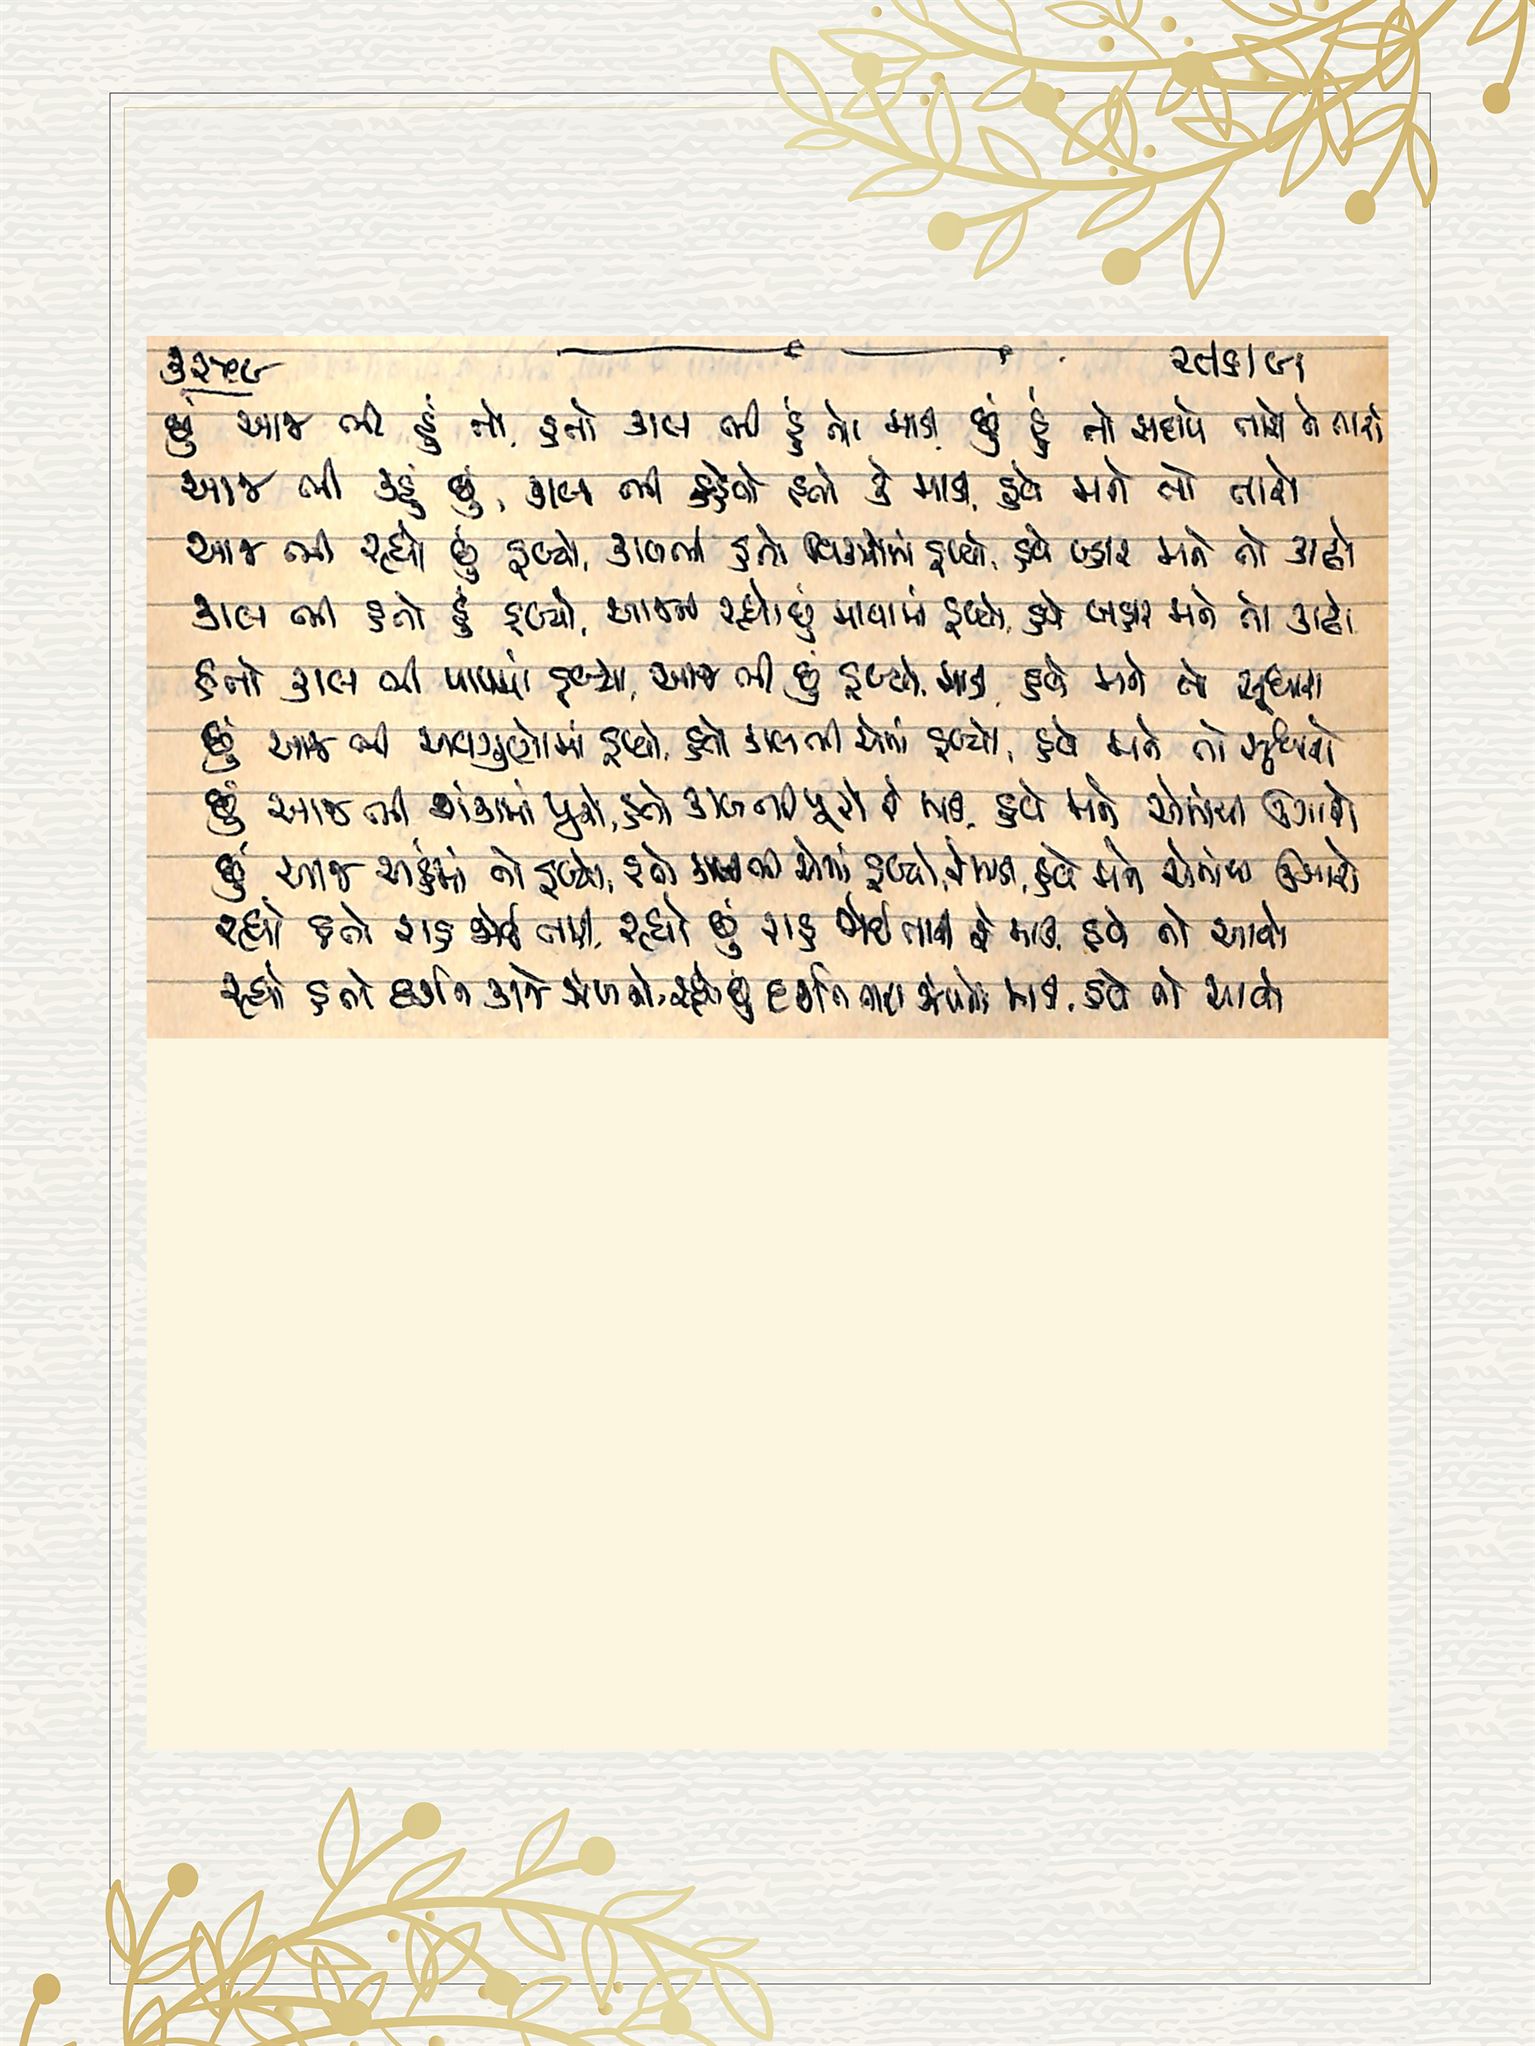 છું આજ ભી હું તો, હતો કાલ ભી હું તો માડી, છું હું તો સદાયે તારો ને તારો
આજ ભી કહું છું, કાલ ભી કહેતો હતો રે માડી, હવે મને તો તારો
આજ ભી રહ્યો છું ડૂબ્યો, કાલ ભી હતો વિકારોમાં ડૂબ્યો, હવે બહાર મને તો કાઢો
કાલ ભી હતો હું ડૂબ્યો, આજ ભી રહ્યો છું માયામાં ડૂબ્યો, હવે બહાર મને તો કાઢો
હતો કાલ ભી પાપમાં ડૂબ્યો, આજ ભી છું ડૂબ્યો, માડી, હવે મને તો સુધારો
છું આજ ભી અવગુણોમાં ડૂબ્યો, હતો કાલ ભી એમાં ડૂબ્યો, હવે મને તો સુધારો
છું આજ ભી શંકામાં પૂરો, હતો કાલ ભી પૂરો રે માડી, હવે મને એમાંથી ઉગારો
છું આજ અહંમાં તો ડૂબ્યો, હતો કાલ ભી એમાં ડૂબ્યો, રે માડી, હવે મને એમાંથી ઉગારો
રહ્યો હતો રાહ જોઈ તારી, રહ્યો છું રાહ જોઈ તારી રે માડી, હવે તો આવો
રહ્યો હતો દર્શન કાજે ઝંખતો, રહ્યો છું દર્શન તારા ઝંખતો માડી, હવે તો આવો